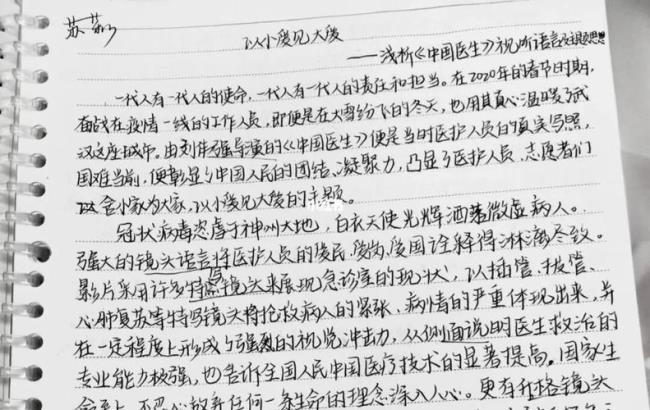 苏苏
以小爱见大爱
——浅析《中国医生》视听语言及
一代人有一代人的使命,一代人有一代人的责任和担当。在2020年的春节时期,
奋战在疫情一线的工作人员,即便是在大雪纷飞的冬天,也用其真心温暖了武
汉这座城市。由刘伟强导演的《中国医生》便是当时医护人员的真实写照,
国难当前,便彰显了中国人民的团结、凝聚力,凸显了医护人员、志愿者们
以舍小家为大家,以小爱见大爱的主题。
冠状病毒恣虐于神州大地,白衣天使光辉洒落微虚病人。
强大的镜头语言将医护人员的爱民、爱为、爱国诠释得淋漓尽致。
影片采用许多特写镜头来展现急诊室的现状,以插管、拔管、
心肺复苏等特写镜头将抢救病人的紧张、病情的严重体现出来,并
在一定程度上形成了强烈的视觉冲击力,从侧面说明医生救治的
专业能力极强,也告诉全国人民中国医疗技术的显著提高。国家生
命至上,不忍心放弃任何一条生命的理念深入人心。更有升格镜头